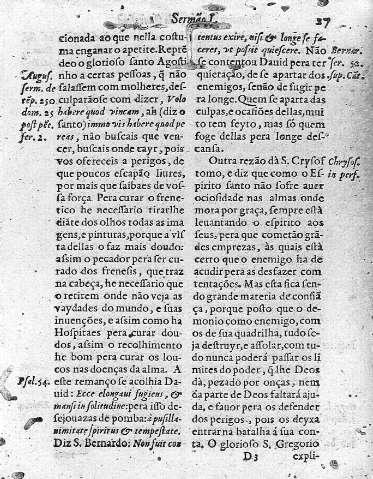 Sermão I.
37
cionada ao que nella costu-
ma enganar o apetite. Repré
deo o glorioso santo Agosti
nho a certas pessoas, q̃ não
se salassem com molheres, des-
culparãose com dizer, Volo
habere quod vincam, ah (diz o
santo) immo vis habere quod pe
reas, não buscais que ven-
cer, buscais onde cayr, pois
vos ofereceis a perigos, de
que poucos escapão liures,
por mais que saibaes de vos-
sa força. Pera curar o frene-
tico he necessario tirarlhe
diãte dos olhos todas as ima
gens, e pinturas, porque a vis
ta dellas o faz mais doudo:
assim o pecador pera ser cu-
rado dos frenesis, que traz
na cabeça, he necessario que
o retirem onde não veja as
vaydades do mundo, e suas
inuenções, e assim como ha
Hospitaes pera curar dou-
dos, assim o recolhimento
he bom pera curar os lou-
cos nas doenças da alma. A
este remanço se acolhia Da-
uid: Ecce elongaui fugiens, &
mansi in solitudine: pera isso de-
sejou azas de pomba: à pusilla-
nimitate spiritus & tempestate.
Diz S. Bernardo: Non fuit con
Augus.
serm. de
tẽp. 250
dom. 25
post pẽt.
ser. 2.
Psal. 54.
tentus exire, nisi & longe fa
ceret, vt possit quiescere. Não
se contentou Dauid pera ter
quietação, de se apartar dos
enemigos, senão de fugir pe
ra longe. Quem se aparta das
culpas, e ocasiões dellas, mui
to tem feyto, mas só quem
foge dellas pera longe des-
cansa.
Outra rezão dà S. Crysos
tomo, e diz que como o Es-
pirito santo não sofre auer
ociosidade nas almas onde
mora por graça, sempre està
leuantando o espirito aos
seus, pera que cometão grã-
des emprezas, às quais està
certo que o enemigo ha de
acudir pera as desfazer com
tentações. Mas esta fica sen-
do grande materia de confiã
ça, porque posto que o de-
monio como enemigo, com
os de sua quadrilha, tudo se-
ja destruyr, e assolar, com tu-
do nunca poderà passar os li
mites do poder, q̃ lhe Deos
dà, pezado por onças, nem
da parte de Deos faltarà aju-
da, e fauor pera os defender
dos perigos, pois os deyxa
entrar na batalha à sua con-
ta. O glorioso S. Gregorio
Bernar.
ser. 52.
sup. Cãt.
Chrysos.
in perf.
D 3
expli-